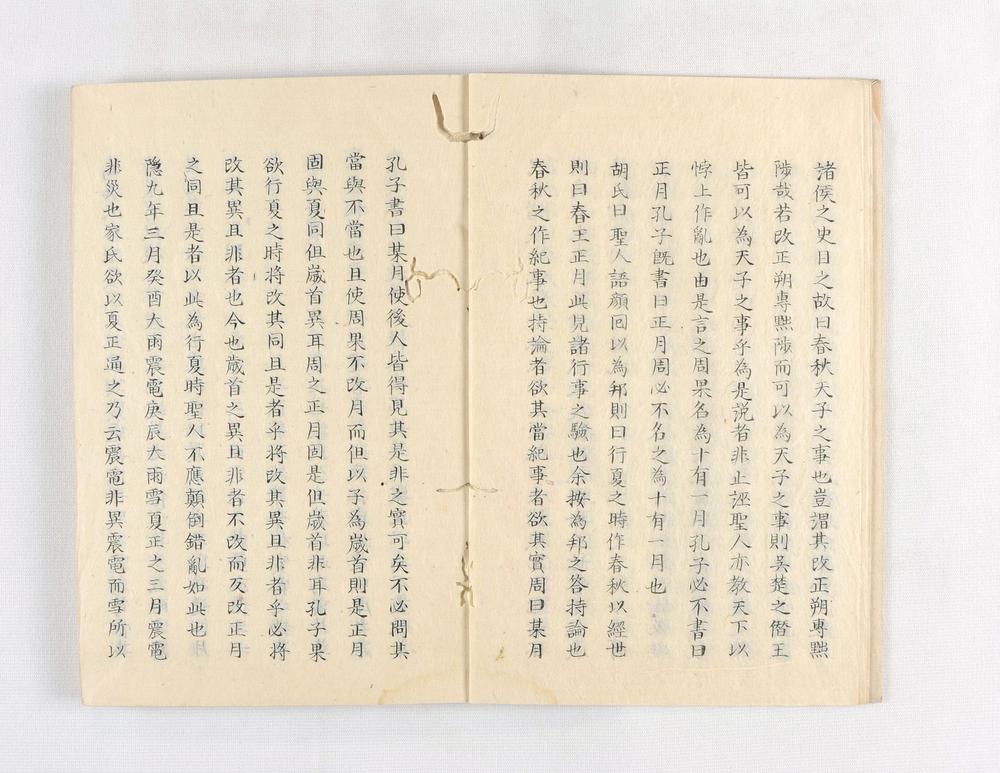 諸侯之史日之故曰春秋天子之事也豈謂其改正朔專黜
陟哉若改正朔專黜陟而可以為天子之事則吳楚之僭王
皆可以為天子之事乎為是說者非止誣聖人亦教天下以
悖上作亂也由是言之周果名為十有一月孔子必不書曰
正月孔子旣書曰正月周必不名之為十有一月也
胡氏曰聖人語顏回以為邦則曰行夏之時作春秋以經世
則曰春王正月此見諸行事之驗也余按為邦之答持論也
春秋之作紀事也持論者欲其當紀事者欲其實周曰某月
孔子書曰某月使後人皆得見其是非之實可矣不必問其
當與不當也且使周果不改月而但以子為歲首則是正月
固與夏同但歲首異耳周之正月固是但歲首非耳孔子果
欲行夏之時將改其同且是者乎將改其異且非者乎必將
改其異且非者也今也歲首之異且非者不改而反改正月
之同且是者以此為行夏時聖人不應顛倒錯亂如此也
隱九年三月癸酉大雨震電庚辰大雨雪夏正之三月震電
非災也家氏欲以夏正通之乃云震電非異震電而雪所以